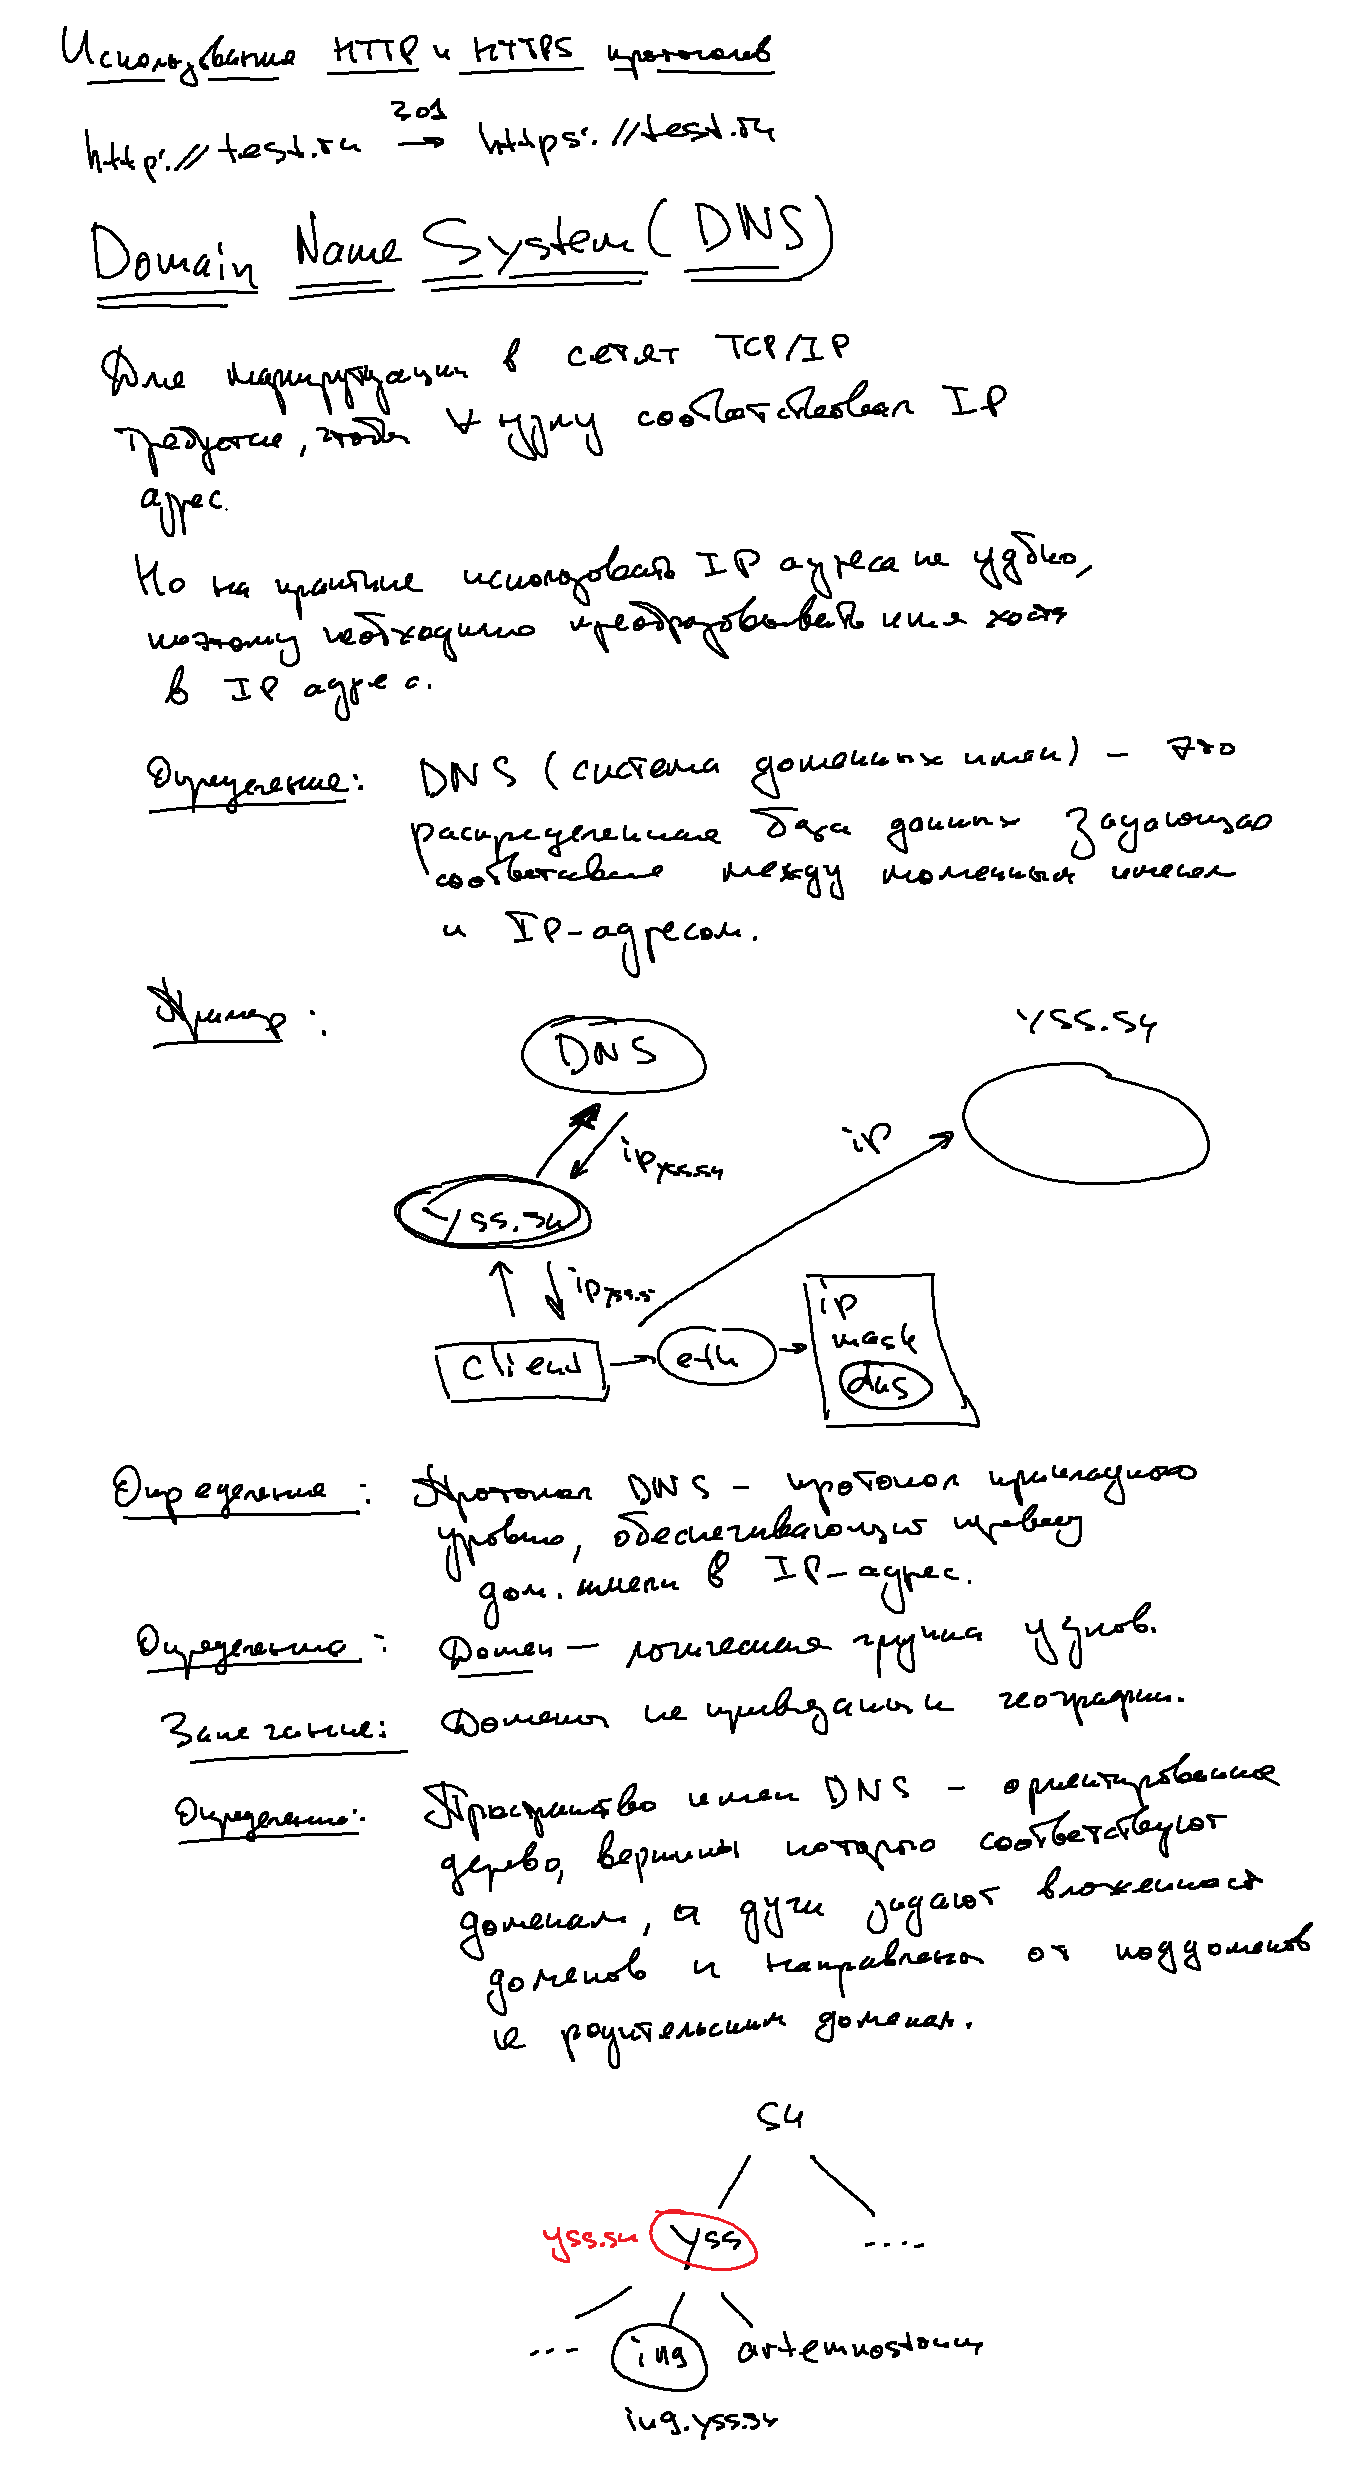 Использование HTTP и HTTPS протоколов
301
http://test.ru → https://test.ru
Domain Name System (DNS)
Для маршрутизации в сетях TCP/IP
требуется, чтобы ∀ узлу соответствовал IP
адрес.
Но на практике использовать IP адреса не удбно,
поэтому необходимо преобразовывать имя хоста
в IP адрес.
Определение: DNS (система доменных имен) – это
распределенная база данных задающая
соответствие между доменным именем
и IP-адресом.
Пример:
DNS
yss.su
ip yss.su
ip
yss.su
ip yss.s
ip
mask
dns
Client → eth →
Определение: Протокол DNS – протокол прикладного
уровня, обеспечивающий перевод
дом. имени в IP-адрес.
Определение: Домен — логическая группа узлов.
Замечание: Домены не привязаны к географии.
Определение: Пространство имен DNS – ориентированное
дерево, вершины которого соответствуют
доменам, а дуги задают вложенность
доменов и направлены от поддоменов
к родительским доменам.
su
yss.su yss ....
... ing artemnostouy
ing.yss.su